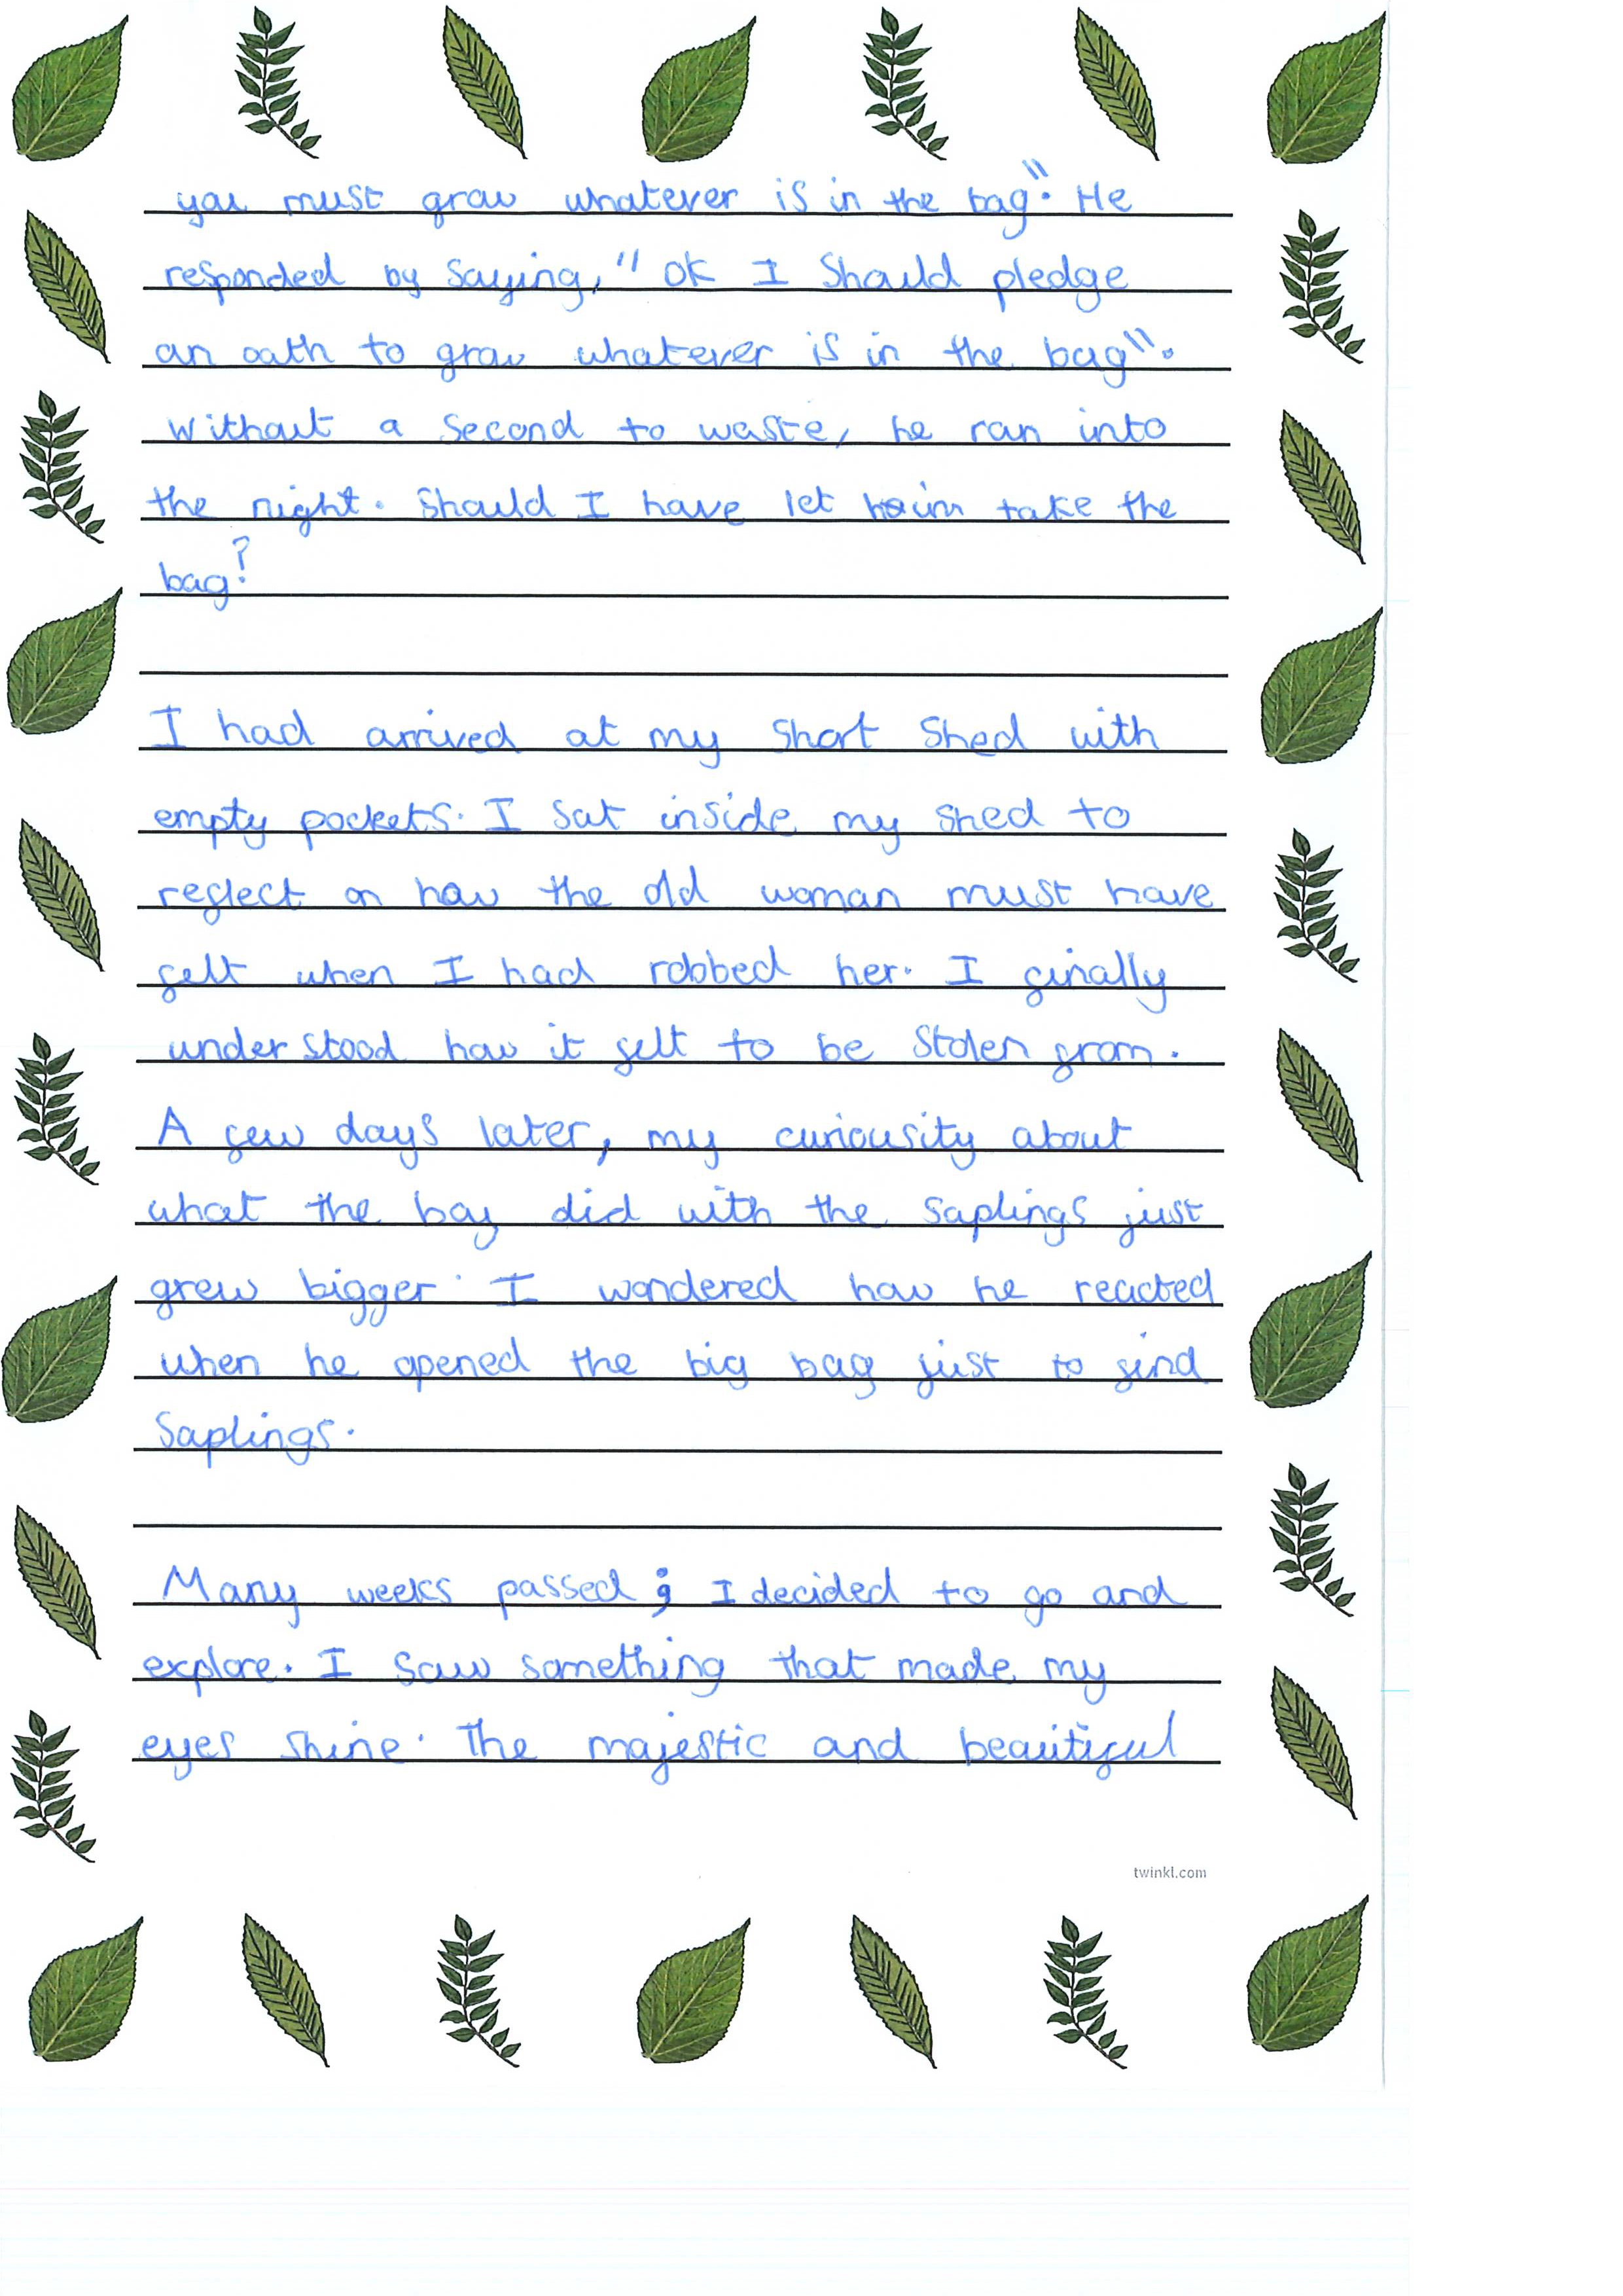 you must grow whatever is in the bag". He
responded by saying, "OK I should pledge
an oath to grow whatever is in the bag".
Without a second to waste, he ran into
the night. Should I have let him take the
bag?
I had arrived at my short shed with
empty pockets. I sat inside my shed to
reflect on how the old woman must have
felt when I had robbed her. I finally
understood how it felt to be stolen from.
A few days later, my curiousity about
what the boy did with the saplings just
grew bigger. I wondered how he reacted
when he opened the big bag just to find
saplings.
Many weeks passed; I decided to go and
explore. I saw something that made my
eyes shine. The majestic and beautiful
twinkl.com